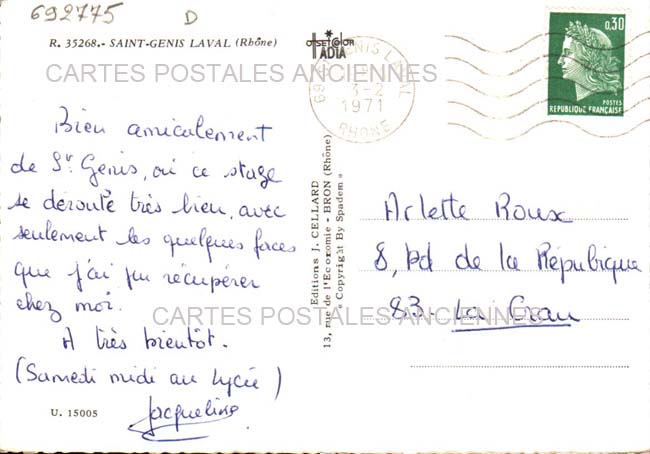 692775 D
R. 35268.- SAINT-GENIS LAVAL (Rhône)
OFFSET COLOR
IADIA
69 ST GENIS LAVAL
3-2
1971
RHONE
0,30
POSTES
REPUBLIQUE FRANÇAISE
CARTES POSTALES ANCIENNES
Bien amicalement
de St Genis, où ce stage
se déroute très bien, avec
seulement les quelques forces
que j'ai pu récupérer
chez moi.
A très bientôt.
(Samedi midi au Lycée)
Jacqueline
U. 15005
Editions J. CELLARD
13, rue de l'Economie - BRON (Rhône)
« Copyright By Spadem »
Arlette Roux
8, Bd de la République
83. La Crau
CARTES POSTALES ANCIENNES